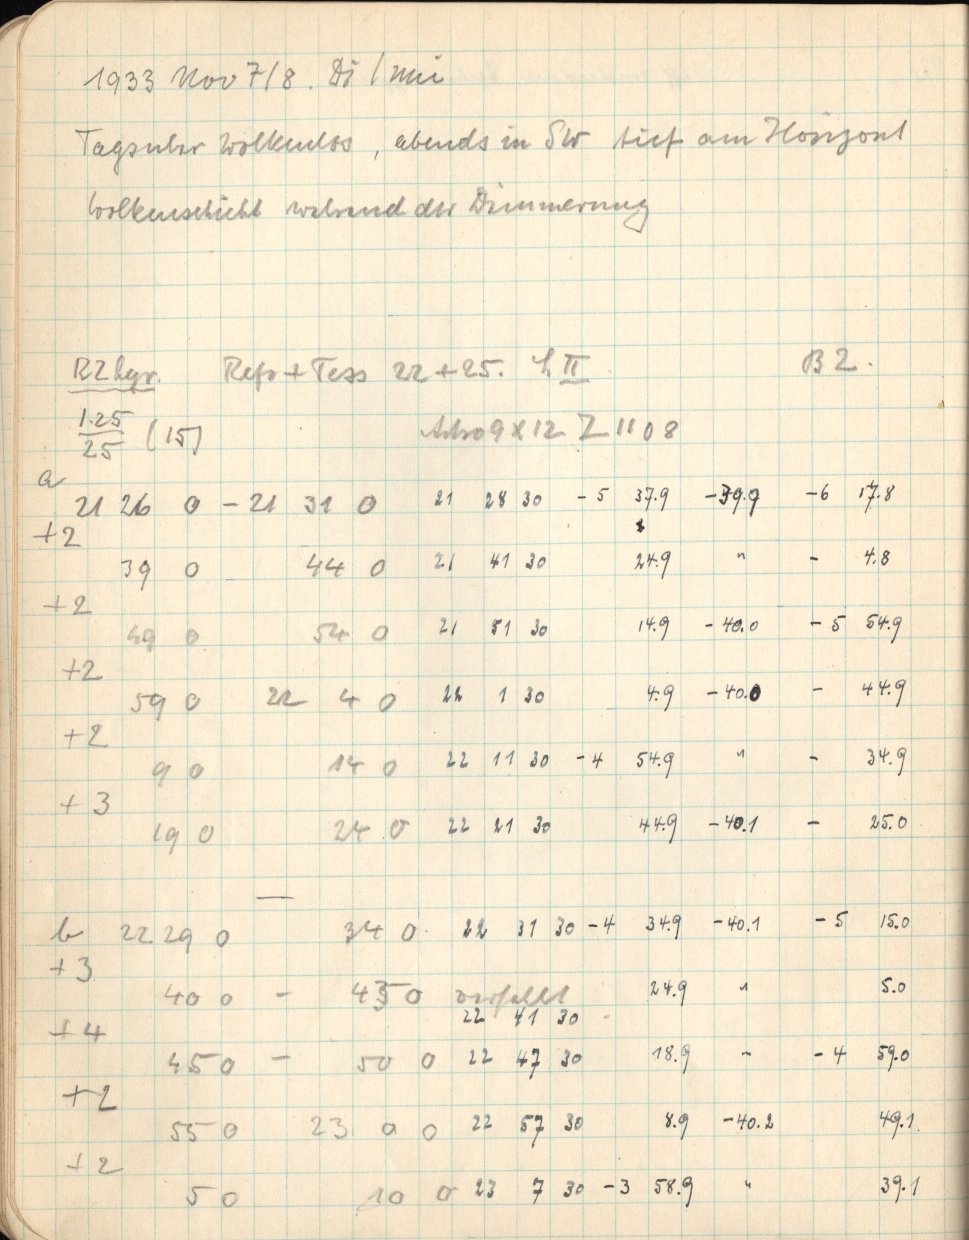 1933 Nov 7/8. Di / Mi
Tagsuber Wolkenlos, abends in SW tief am Horizont
Wolkenschicht während der Dämmerung
RZ Lyr. Refr + Tess 22 + 25. II B 2.
1.25
25 (15) Astro 9 X 12 Z 1108
a
21 26 0 - 21 31 0 21 28 30 - 5 37.9 -39.9 -6 17.8
+2
39 0 44 0 21 41 30 24.9 " - 4.8
+2
49 0 54 0 21 51 30 14.9 -40.0 - 5 54.9
+2
59 0 22 4 0 22 1 30 4.9 -40.0 - 44.9
+2
9 0 14 0 22 11 30 -4 54.9 " - 34.9
+3
19 0 24 0 22 21 30 44.9 -40.1 - 25.0
—
b 22 29 0 34 0 22 31 30 -4 34.9 -40.1 -5 15.0
+3
40 0 - 43 0 24.9 " 5.0
22 41 30
+4
45 0 - 50 0 22 47 30 18.9 " -4 59.0
+2
55 0 23 0 0 22 57 30 8.9 -40.2 49.1
+2
5 0 10 0 23 7 30 -3 58.9 " 39.1